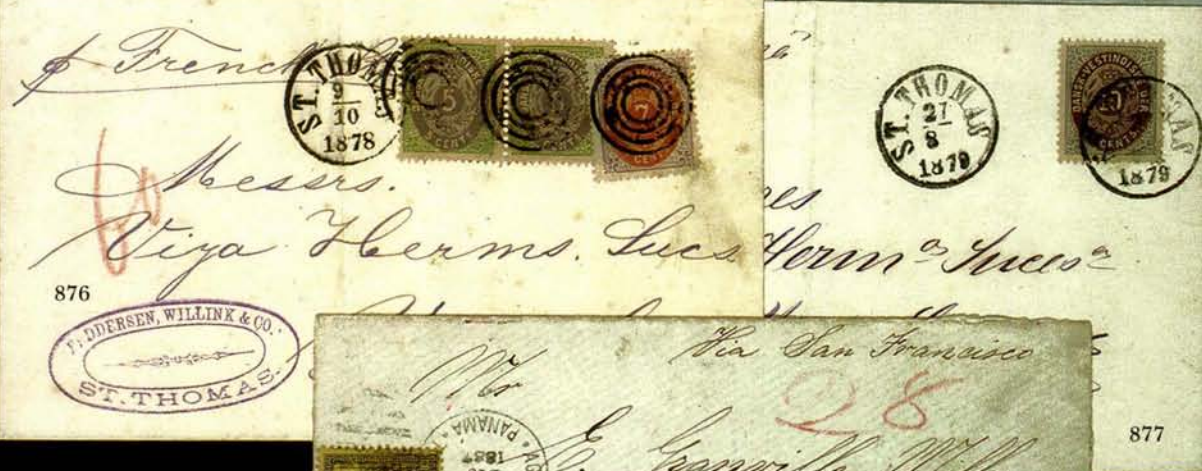 French
ST. THOMAS
9
10
1878
5
CENTS
CENTS
7
CENTS
Messrs.
Viya Herms. Sucs
876
F. DDERSEN, WILLINK & CO.
ST. THOMAS.
ST. THOMAS
27
8
1879
DANSK-VESTINDISKE
CENTS
1879
Herm Suces
877
Via San Francisco
28
Mr
PANAMA
1887
E. Granville